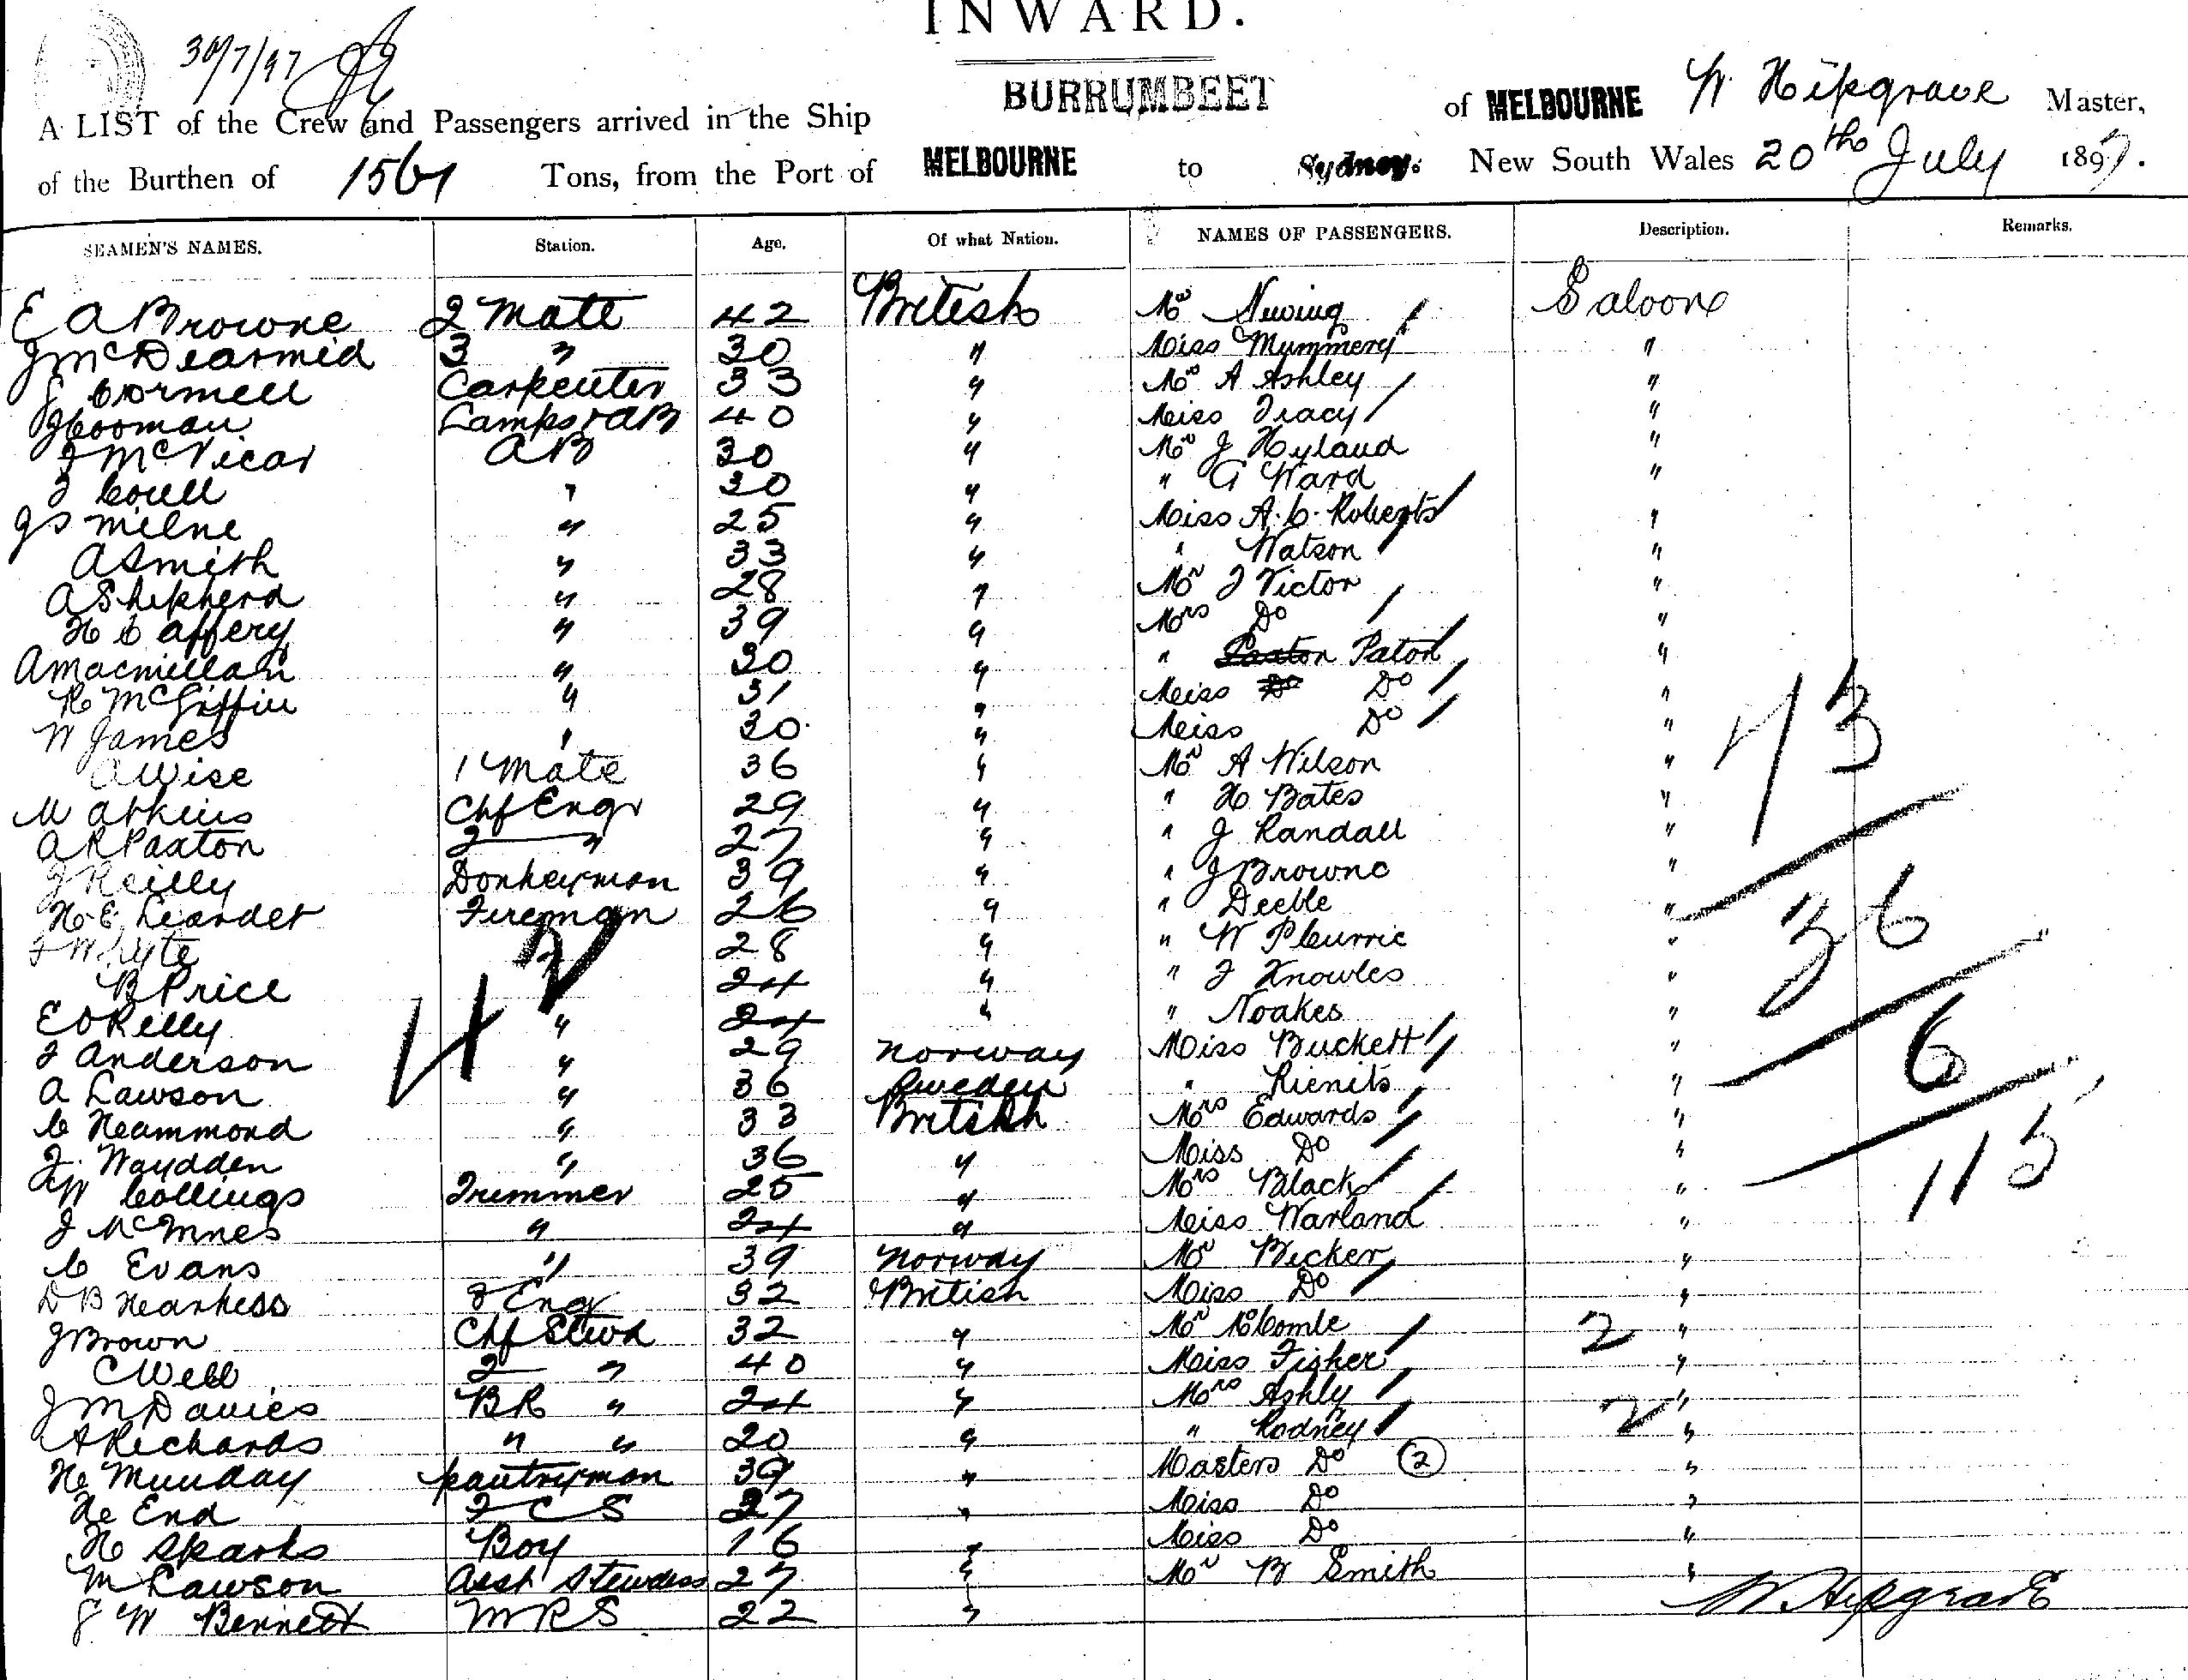 INWARD.
30/7/97
A LIST of the Crew and Passengers arrived in the Ship BURRUMBEET of MELBOURNE W. Hipgrave Master,
of the Burthen of 1561 Tons, from the Port of MELBOURNE to Sydney. New South Wales 20th July 1897.
SEAMEN'S NAMES. Station. Age. Of what Nation. NAMES OF PASSENGERS. Description. Remarks.
E A Browne 2 Mate 42 British Mr Newing Saloon
J McDearmid 3 " 30 " Miss Mummery "
J Cormell Carpenter 33 " Mr A Ashley "
J Cooman Lamps & AB 40 " Miss Tracy "
J McVicar AB 30 " Mr J Hyland "
J Coull " 30 " " G Ward "
J S Milne " 25 " Miss A. C. Roberts "
A Smith " 33 " " Watson "
A Shepherd " 28 " Mr J Victor "
H Caffery " 39 " Mrs Do "
A Macmillan " 30 " " Paxton Paton "
R McGiffin " 31 " Miss Do Do "
W James " 30 " Miss Do "
A Wise 1 Mate 36 " Mr A Wilson " 73
M Atkins Chf Engr 29 " " H Bates "
A R Paxton 2 " 27 " " J Randall "
J Reilly Donkeyman 39 " " J Browne "
H. E. Leardet Fireman 26 " " Deeble " 36
J Whyte " 28 " " W Currie "
B Price 24 " " J Knowles "
E O Reilly " 24 " " Noakes "
J Anderson " 29 Norway Miss Buckett " 6
A Lawson " 36 Sweden " Rienits "
C Hammond " 33 British Mrs Edwards "
J. Waydden " 36 " Miss Do "
W Collings Trimmer 25 " Mrs Black " 115
J McInnes " 24 " Miss Warland "
C Evans " 39 Norway Mr Becker "
D B Harkess 3 Eng 32 British Miss Do "
J Brown Chf Stwd 32 " Mr McCombe 2 "
C Webb 2 " 40 " Miss Fisher "
J M Davies BR " 24 " Mrs Ashly "
A Richards " " 20 " " Rodney 2 "
H Munday pantryman 39 " Masters Do (2) "
H End F C S 27 " Miss Do "
H Sparks Boy 16 " Miss Do "
M Lawson Asst Stewdess 27 " Mr B Smith "
J W Bennett M R S 22 " W Hipgrave